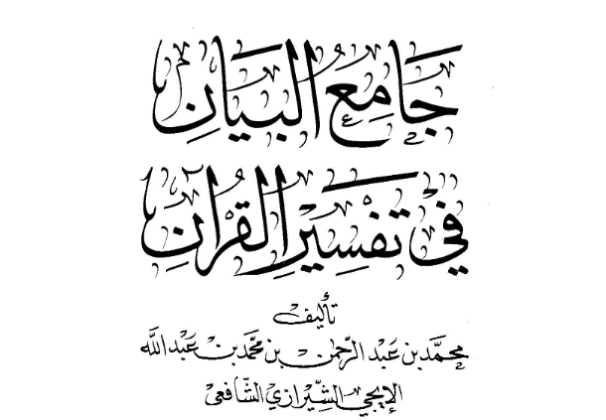 جَامِعُ البَيَانِ
فِي تَفْسِيرِ القُرْآنِ
تأليف
محمّد بن عبد الرّحمٰن بن محمّد بن عبد اللّه
الإيجي الشّيرازي الشّافعي